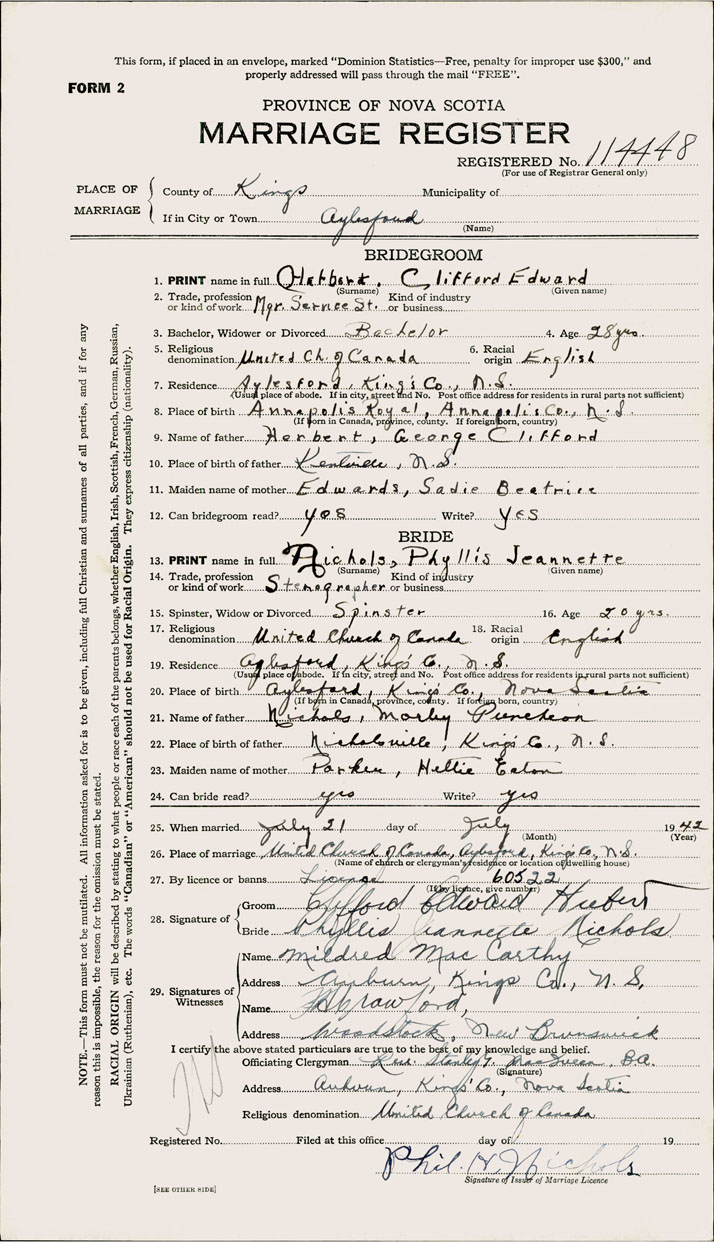 This form, if placed in an envelope, marked "Dominion Statistics—Free, penalty for improper use $300," and
properly addressed will pass through the mail "FREE".
FORM 2
PROVINCE OF NOVA SCOTIA
MARRIAGE REGISTER
REGISTERED No. 114448
(For use of Registrar General only)
PLACE OF MARRIAGE
County of Kings Municipality of
If in City or Town Aylesford
(Name)
BRIDEGROOM
1. PRINT name in full Herbert, Clifford Edward
(Surname) (Given name)
2. Trade, profession or kind of work Mgr. Service St. Kind of industry or business
3. Bachelor, Widower or Divorced Bachelor 4. Age 28 yrs.
5. Religious denomination United Ch. of Canada 6. Racial origin English
7. Residence Aylesford, King's Co., N.S.
(Usual place of abode. If in city, street and No. Post office address for residents in rural parts not sufficient)
8. Place of birth Annapolis Royal, Annapolis Co., N.S.
(If born in Canada, province, county. If foreign born, country)
9. Name of father Herbert, George Clifford
10. Place of birth of father Kentville, N.S.
11. Maiden name of mother Edwards, Sadie Beatrice
12. Can bridegroom read? yes Write? yes
BRIDE
13. PRINT name in full Nichols, Phyllis Jeannette
(Surname) (Given name)
14. Trade, profession or kind of work Stenographer Kind of industry or business
15. Spinster, Widow or Divorced Spinster 16. Age 20 yrs.
17. Religious denomination United Church of Canada 18. Racial origin English
19. Residence Aylesford, King's Co., N.S.
(Usual place of abode. If in city, street and No. Post office address for residents in rural parts not sufficient)
20. Place of birth Aylesford, King's Co., Nova Scotia
(If born in Canada, province, county. If foreign born, country)
21. Name of father Nichols, Morley Puncheon
22. Place of birth of father Nicholsville, King's Co., N.S.
23. Maiden name of mother Parker, Nettie Eaton
24. Can bride read? yes Write? yes
25. When married July 21 day of July 1942
(Month) (Year)
26. Place of marriage United Church of Canada, Aylesford, King's Co., N.S.
(Name of church or clergyman's residence or location of dwelling house)
27. By licence or banns License 60522
(If by licence, give number)
28. Signature of
Groom Clifford Edward
Bride Phyllis Jeannette Nichols
29. Signatures of Witnesses
Name Mildred MacCarthy
Address Auburn, Kings Co., N.S.
Name Crawford,
Address Woodstock, New Brunswick
I certify the above stated particulars are true to the best of my knowledge and belief.
Officiating Clergyman Rev. Stanley MacQueen, B.A.
(Signature)
Address Auburn, King's Co., Nova Scotia
Religious denomination United Church of Canada
Registered No. Filed at this office day of 19
Phil. H. Nichols
Signature of Issuer of Marriage Licence
[SEE OTHER SIDE]
NOTE.—This form must not be mutilated. All information asked for is to be given, including full Christian and surnames of all parties, and if for any
reason this is impossible, the reason for the omission must be stated.
RACIAL ORIGIN will be described by stating to what people or race each of the parents belongs, whether English, Irish, Scottish, French, German, Russian,
Ukrainian (Ruthenian), etc. The words "Canadian" or "American" should not be used for Racial Origin. They express citizenship (nationality).